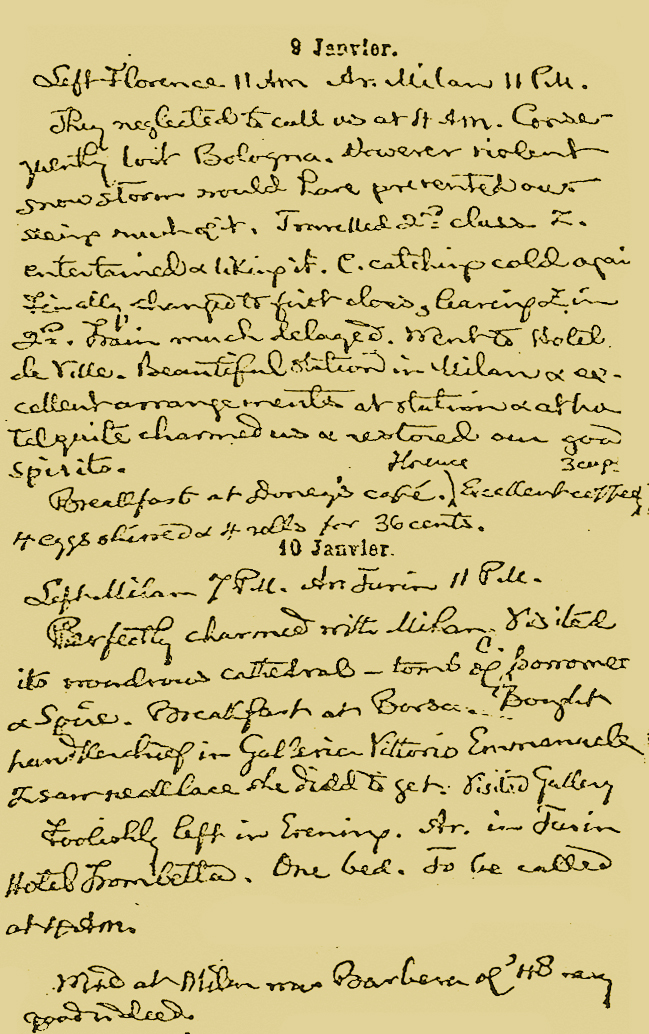 9 Janvier.
Left Florence 11 Am Ar. Milan 11 P.M.
They neglected to call us at 4 Am. Conse-
quently lost Bologna. However violent
snow storm would have prevented our
seing much of it. Travelled 2nd class Z.
entertained & liking it. C. catching cold agai
Finally changed to first class, leaving Z. in
2nd. Train much delayed. Went to Hotel
de Ville. Beautiful station in Milan & ex-
cellent arrangements at station & at ho
tel quite charmed us & restored our good
spirits.
Florence 3 cups
Breakfast at Doney's café. Excellent coffee
4 eggs shirred & 4 rolls for 36 cents.
10 Janvier.
Left Milan 7 P.M. Ar. Turin 11 P.M.
Perfectly charmed with Milan. Visited
its wondrous cathedral – tomb of C. Borromeo
& Spire. Breakfast at Borsa. Bought
handkerchief in Galleria Vittorio Emmanuele
Z saw necklace she didd to get. Visited Gallery
Foolishly left in Evening. Ar. in Turin
Hotel Trombetta. One bed. To be called
at 4 Am.
at Milan was Barbera of '48 very
good indeed.